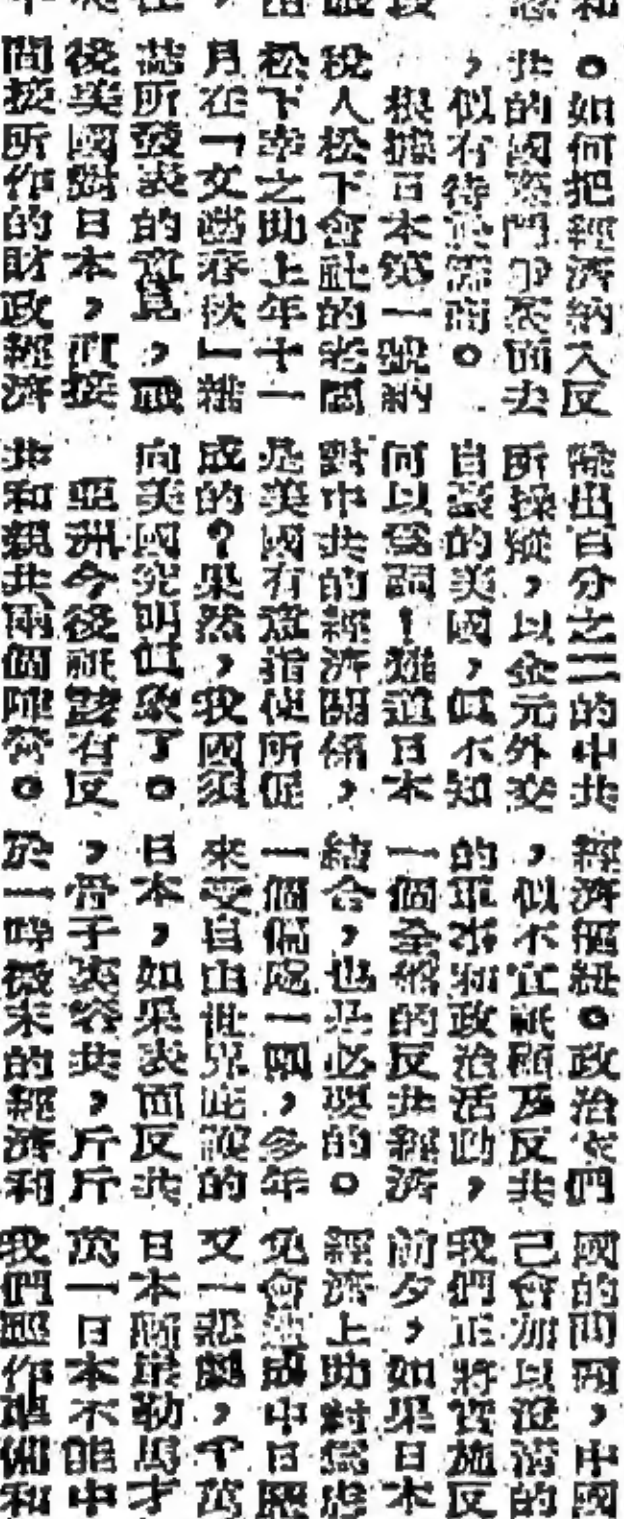 。如何把經濟納入反
共的國際鬥爭裡面去
，似有待於深商。
根據日本第一號納
稅人松下會社的老闆
松下幸之助上年十一
月在「文藝春秋」雜
誌所發表的意見，戰
後美國對日本，直接
間接所作的財政經濟
除出百分之二的中共
所操縱，以金元外交
自豪的美國，但不知
何以為詞！難道日本
對中共的經濟關係，
是美國有意指使所促
成的？果然，我國須
向美國先叫但歇了。
亞洲今後祇該有反
共和親共兩個陣營。
經濟樞紐。政治家們
，似不宜祇顧及反共
的軍事和政治活動，
一個全盤的反共經濟
結合，也是必要的。
一個偏處一隅，多年
來受自由世界庇護的
日本，如果表面反共
，骨子裏容共，斤斤
於一時微末的經濟利
國的問題，中國
己會加以澄清的
我們正將實施反
前夕，如果日本
經濟上助對為虐
免會造成中日歷
又一悲劇，千萬
日本懸崖勒馬才
萬一日本不能中
我們應作準備和